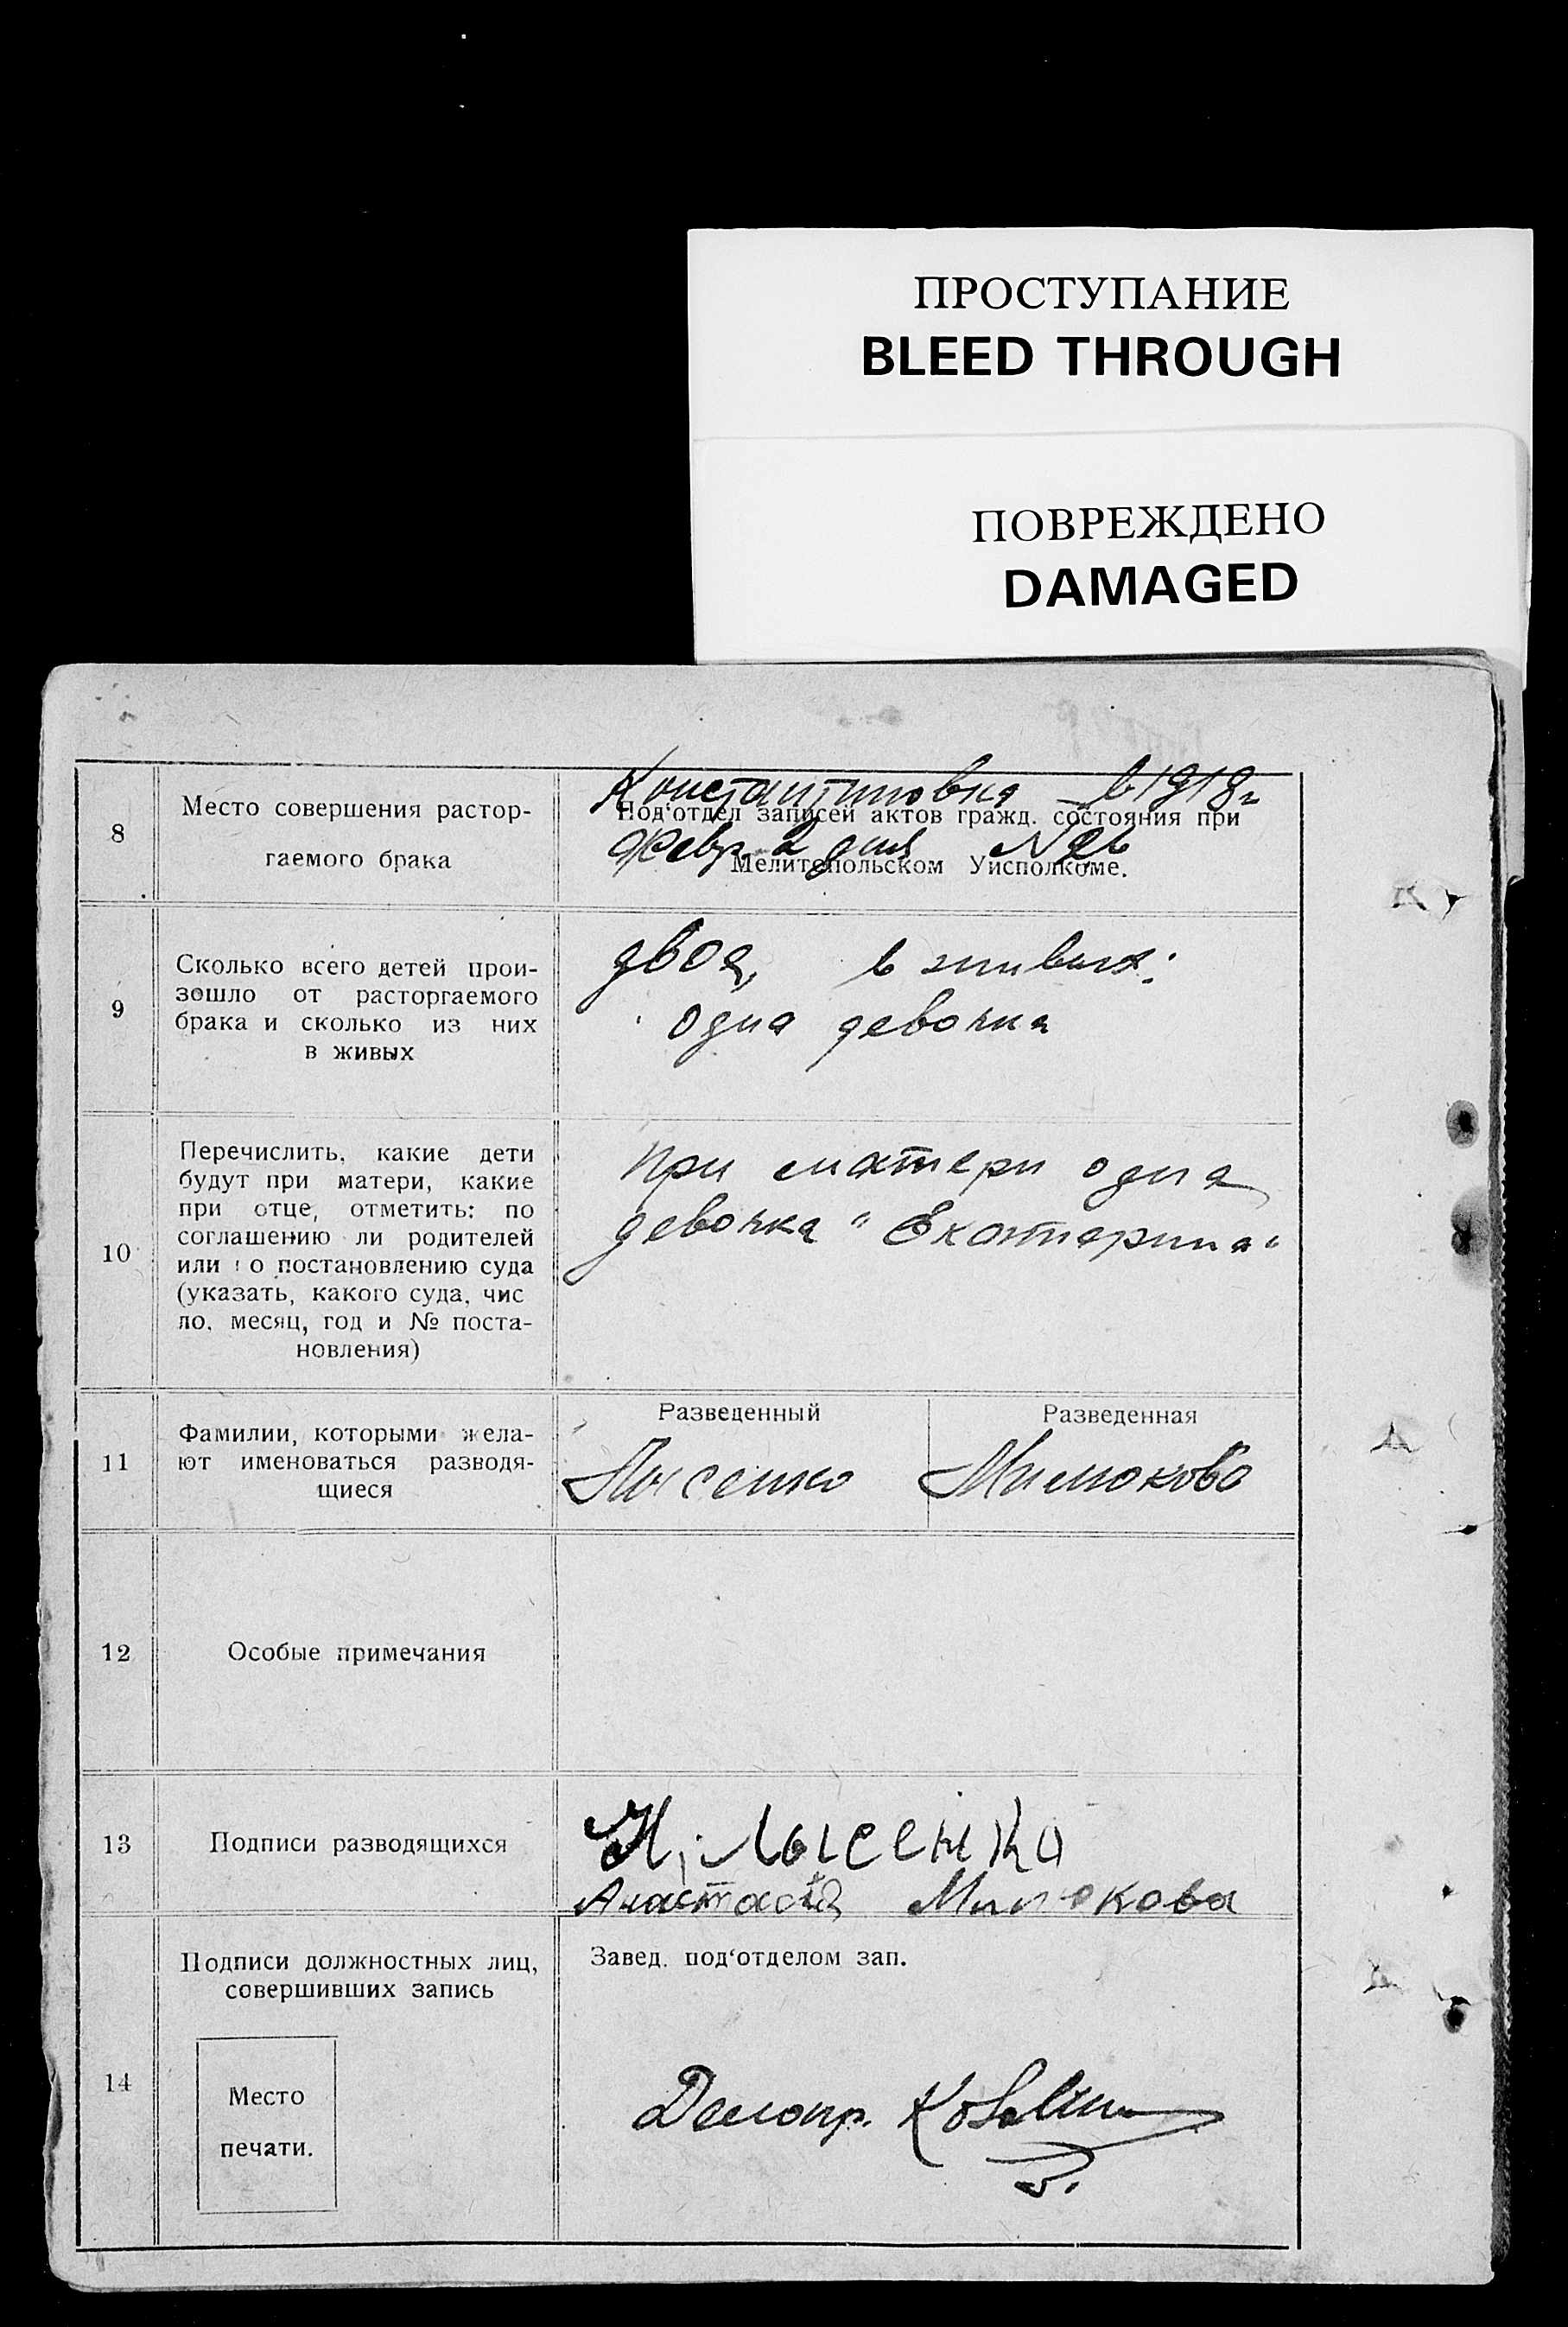 ПРОСТУПАНИЕ
BLEED THROUGH
ПОВРЕЖДЕНО
DAMAGED
8
Место совершения растор-
гаемого брака
Константиновка в 1918 г
Под‘отдел записей актов гражд. состояния при
Февр. 2 дня №
Мелитопольском Уисполкоме.
9
Сколько всего детей прои-
зошло от расторгаемого
брака и сколько из них
в живых
двое, в живых:
одна девочка
10
Перечислить, какие дети
будут при матери, какие
при отце, отметить: по
соглашению ли родителей
или о постановлению суда
(указать, какого суда, чис
ло, месяц, год и № поста-
новления)
при матери одна
девочка "Екатерина"
11
Фамилии, которыми жела-
ют именоваться разводя-
щиеся
Разведенный
Лысенко
Разведенная
Милюкова
12
Особые примечания
13
Подписи разводящихся
Н. Лысенко
Анастасія Милюкова
14
Подписи должностных лиц,
совершивших запись
Место
печати.
Завед. под‘отделом зап.
Делопр.